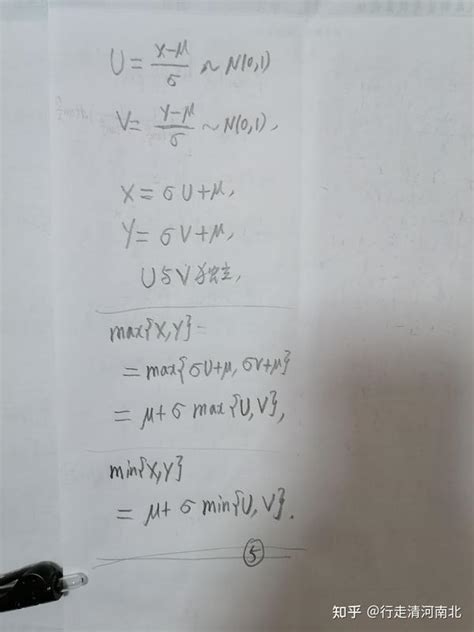 U = (X-μ)/σ ~ N(0,1)
V = (Y-μ)/σ ~ N(0,1),
X = σU+μ,
Y = σV+μ,
U与V独立,
max{X,Y}=
= max{σU+μ, σV+μ}
= μ+σ max{U,V},
min{X,Y}
= μ+σ min{U,V}.
⑤
知乎 @行走清河南北